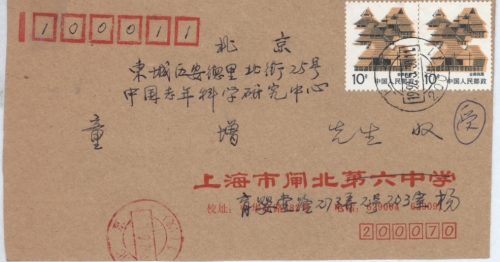 100011
北京
東城区安潮里北街25号
中国老年科学研究中心
童增 先生 收
受
10分 中国人民邮政
10分 中国人民邮政
上海市闸北第六中学
校址:
育婴堂路273弄2号203室 杨
200070